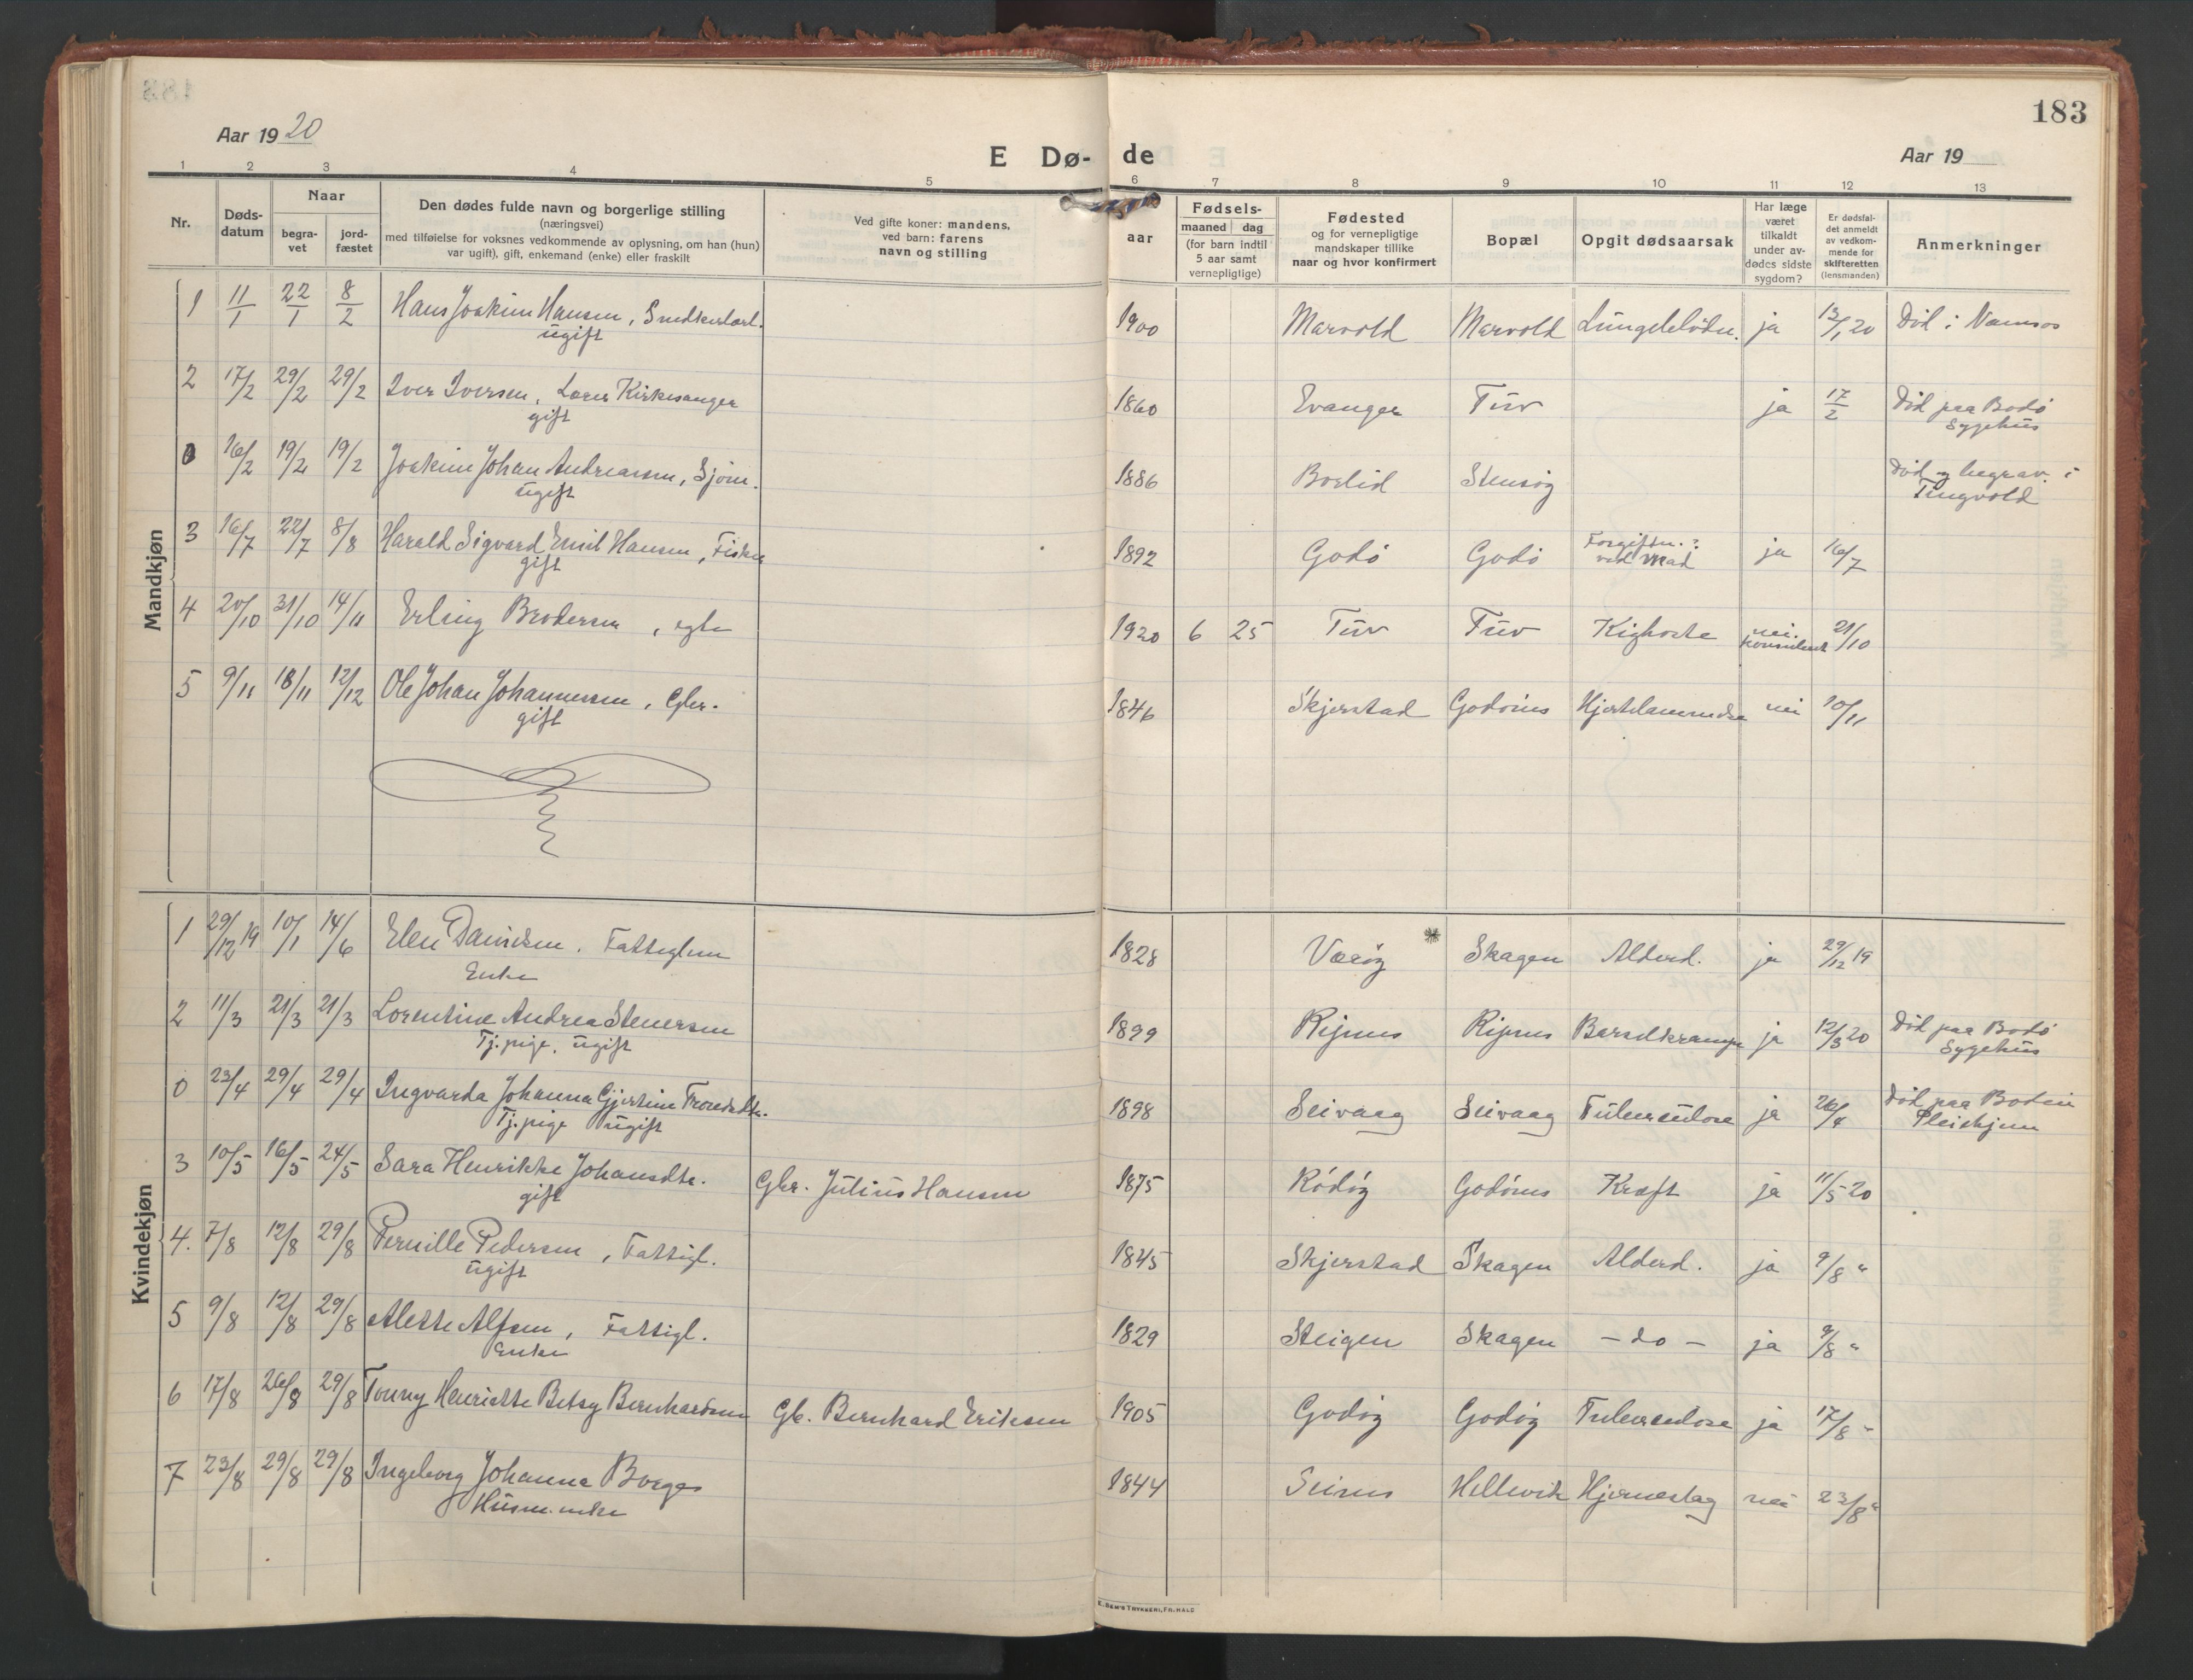 183
Aar 1920
E Dø- de
Aar 19
1 2 3 4 5 6 7 8 9 10 11 12 13
Nr.
Døds-
datum
Naar
begra-
vet
jord-
fæstet
Den dødes fulde navn og borgerlige stilling
(næringsvei)
med tilføielse for voksnes vedkommende av oplysning, om han (hun)
var ugift), gift, enkemand (enke) eller fraskilt
Ved gifte koner: mandens,
ved barn: farens
navn og stilling
aar
Fødsels-
maaned dag
(for barn indtil
5 aar samt
vernepligtige)
Fødested
og for vernepligtige
mandskaper tillike
naar og hvor konfirmert
Bopæl
Opgit dødsaarsak
Har læge
været
tilkaldt
under av-
dødes sidste
sygdom?
Er dødsfal-
det anmeldt
av vedkom-
mende for
skifteretten
(lensmanden)
Anmerkninger
Mandkjøn
1 11/1 22/1 8/2 Hans Joakim Hansen, Snedkerlærl. 1900 Marvold Marvold ja 13/1 20 Død i Namsos
ugift
2 17/2 29/2 29/2 Iver Iversen, Lærer Kirkesanger 1860 Evanger Tuv ja 17/2 Død paa Bodø
gift Sygehus
0 16/2 19/2 19/2 Joakim Johan Andreassen, Sjøm. 1886 Stensøg Død og begrav. i
ugift Tingvold
3 16/7 22/7 8/8 Harald Sigvard Emil Hansen, Fisker 1892 Godø Godø Forgiftn.? ja 16/7
gift ved Mad
4 20/10 31/10 14/11 Erling Brodersen, egte 1920 6 25 Tuv Tuv Kighoste nei 21/10
konsulent
5 9/11 18/11 12/12 Ole Johan Johannessen, Gbr. 1846 Skjerstad Godønes Hjertelammelse nei 10/11
gift
Kvindekjøn
1 29/12 19 10/1 14/6 Elen Davidsen. Fattiglem 1828 Værøy Skagen Alderd. ja 29/12 19
Enke
2 11/3 21/3 21/3 Lorentine Andrea Steversen 1899 Ripnes Ripnes Barselkrampe ja 12/3 20 Død paa Bodø
Tj.pige, ugift Sygehus
0 23/4 29/4 29/4 Ingvarda Johanna Gjertine 1898 Seivaag Seivaag Tuberculose ja 26/4 Død paa Bodin
Tj.pige ugift Pleiehjem
3 10/5 16/5 24/5 Sara Henrikke Johansdtr. Gbr. Julius Hansen 1875 Rødøy Godønes Kræft ja 11/5 20
gift
4. 7/8 12/8 29/8 Pernille Pedersen, Fattigl. 1845 Skjerstad Skagen Alderd. ja 9/8 "
ugift
5 9/8 12/8 29/8 Alette Alfsen, Fattigl. 1829 Steigen Skagen - do - ja 9/8 "
Enke
6 17/8 26/8 29/8 Tonny Henriette Betsy Bernhardsen Gb. Bernhard Eriksen 1905 Godøy Godøy Tuberculose ja 17/8 "
7 23/8 29/8 29/8 Ingeborg Johanna Borges 1844 Seines Hellevik Hjerneslag nei 23/8 "
Husm. enke
E. SEM'S TRYKKERI, FR.HALD